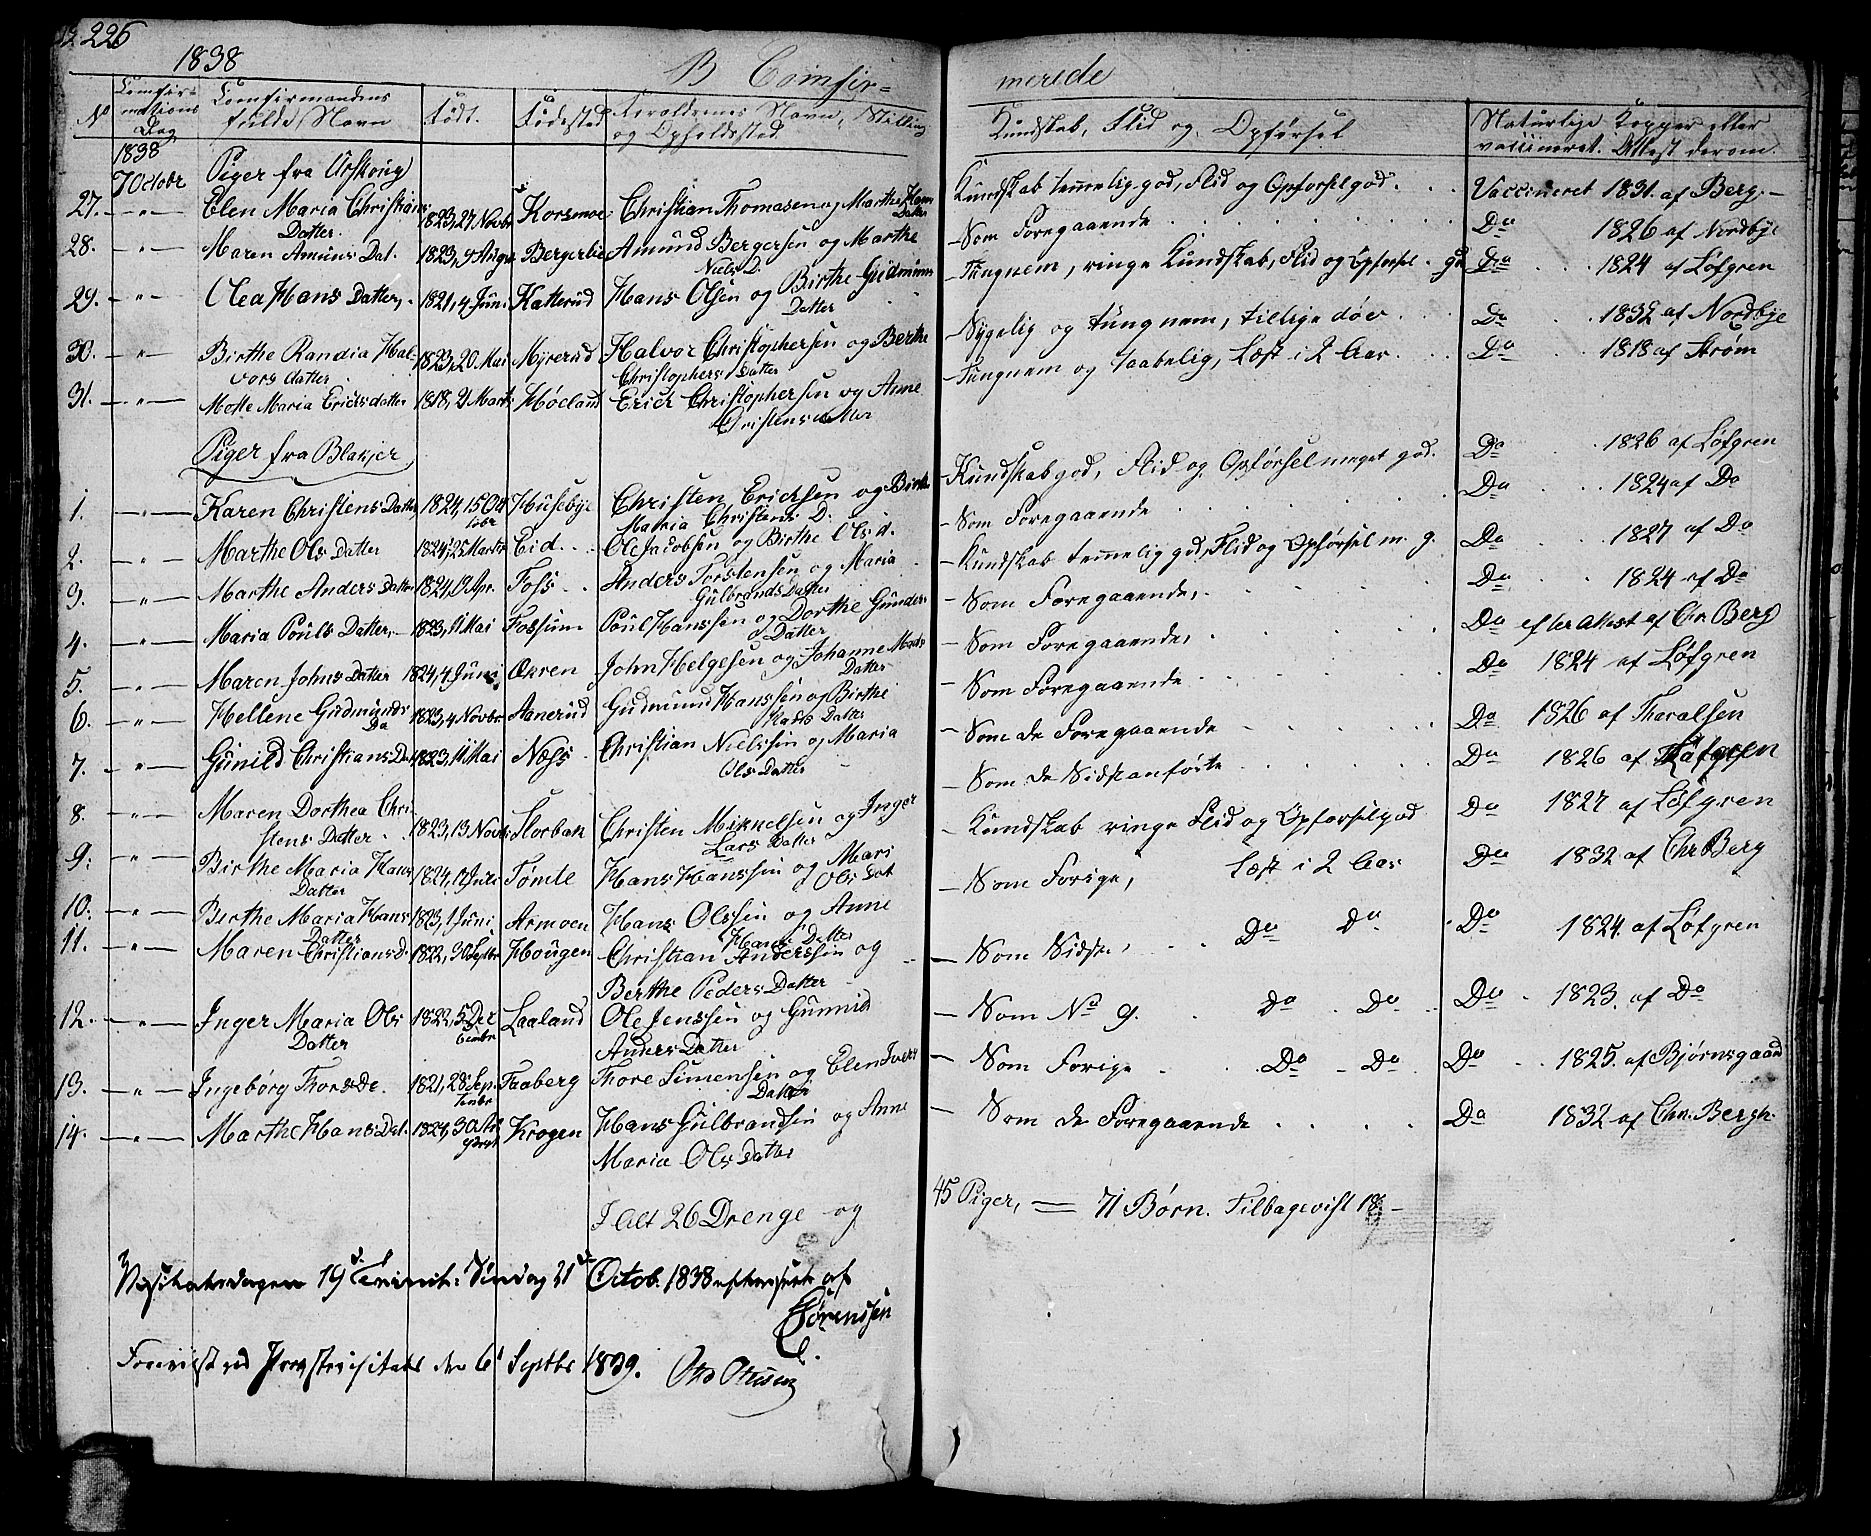 226
1838 B Comfir= merede
No Comfir= mations Dag Comfirmandens fulde Navn Födt. Födested Foreldrenes Navn, Stilling og Opholdssted Kundskab, Flid og Opførsel Naturlige Kopper eller vaccineret. Attest derom.
1838
7 Octobr Piger fra Urskoug
27. — " — Elen Maria Christians Datter. 1823, 27 Novbr Korsmoe Christian Thomasen og Marthe Datter Kundskab temmelig god, Flid og Opförsel god. Vaccineret 1831. af Berg. —
28. — " — Maren Amuns Dat. 1823, 9 Augu Bergerlie Amund Bergersen og Marthe Niels D. — Som Foregaaende Do 1826 af Nordbye
29. — " — Olea Hans Datter, 1821, 4 Juni Katterud Hans Olsen og Birthe Gudmuns Datter — Tungnem, ringe Kundskab, Flid og Opförsel gd Do 1824 af Löfgren
30. — " — Birthe Randia Halvors datter 1823, 20 Mai Myrerud Halvor Christophersen og Berthe Christophers Datter — Sygelig og tungnem, tillige döv Do 1832 af Nordbye
31. — " — Mette Maria Ericksdatter 1818, 21 Marts Höeland Erick Christophersen og Anne Christensdatter — Tungnem og taabelig, Læst i 2 Aar Do 1818 af Ström
Piger fra Blakjer
1. — " — Karen Christens Datter 1824, 15 Octobr Husebye Christen Ericksen og Birthe Maria Christens D. — Kundskab god, Flid og Opförsel meget god. Do 1826 af Löfgren
2. — " — Marthe Ols Datter 1824, 25 Marts Eid. Ole Jacobsen og Birthe Ols d. — Som Foregaaende Do 1824 af Do
3. — " — Marthe Anders Datter 1824, 19 Apr. Foss Anders Torstensen og Maria Gulbrands Datter — Kundskab temmelig god, Flid og Opförsel m. g. Do 1827 af Do
4. — " — Maria Pouls Datter, 1823, 11 Mai Fossum Poul Hanssen og Dorthe Gunders Datter — Som Foregaaende, Do 1824 af Do
5. — " — Maren Johns Datter 1824, 4 Juni John Helgesen og Johanne Mads Datter — Som Foregaaende, Do efter Attest af Chr Berg
6. — " — Hellene Gudmunds Da 1823, 4 Novbr Aanerud Gudmund Hanssen og Birthe Mads Datter — Som Foregaaende Do 1824 af Löfgren
7. — " — Gunild Christians Da 1823, 11 Mai Næss Christian Nielssen og Maria Ols Datter — Som de Foregaaende Do 1826 af Thoralsen
8. — " — Maren Dorthea Christens Datter 1823, 13 Novbr Slorbak Christen Mikkelsen og Inger Lars Datter — Som de Sidstanförte Do 1826 af Löfgren
9. — " — Birthe Maria Hans Datter 1824, 17 Juli Tömte Hans Hanssen og Mari Ols Dat — Kundskab ringe Flid og Opförsel god Do 1827 af Löfgren
10. — " — Birthe Maria Hans Datter 1823, 1 Juni Armoen Hans Olssen og Anne Hans Datter — Som Forige, Læst i 2 Aar Do 1832 af Chr Berg
11. — " — Maren Christiansd. 1822, 30 Septbr Hougen Christian Anderssen og Berthe Peders Datter — Som Sidste, Do Do Do 1824. af Löfgren
12. — " — Inger Maria Ols Datter 1822, 5 December Laaland Ole Jenssen og Gunnild Anders Datter — Som No 9. Do Do Do 1823. af Do
13. — " — Ingebörg Thorsda. 1821, 28 September Taaberg Thore Simensen og Elen Ivers Datter — Som Forige Do Do Do 1825. af Björnsgaard
14. — " — Marthe Hans Dat. 1824, 30 Krogen Hans Gulbrandsen og Anne Maria Ols Datter — Som de Foregaaende Do 1832 af Chr. Bergh.
I Alt 26 Drenge og 45 Piger, — 71 Börn. Tilbagevist 18
Visitatsdagen 19de Trinit: Söndag 21de Octob. 1838 efterseet af
Sörenssen
Foreviist ved Provstevisitats den 6t Septbr 1839.